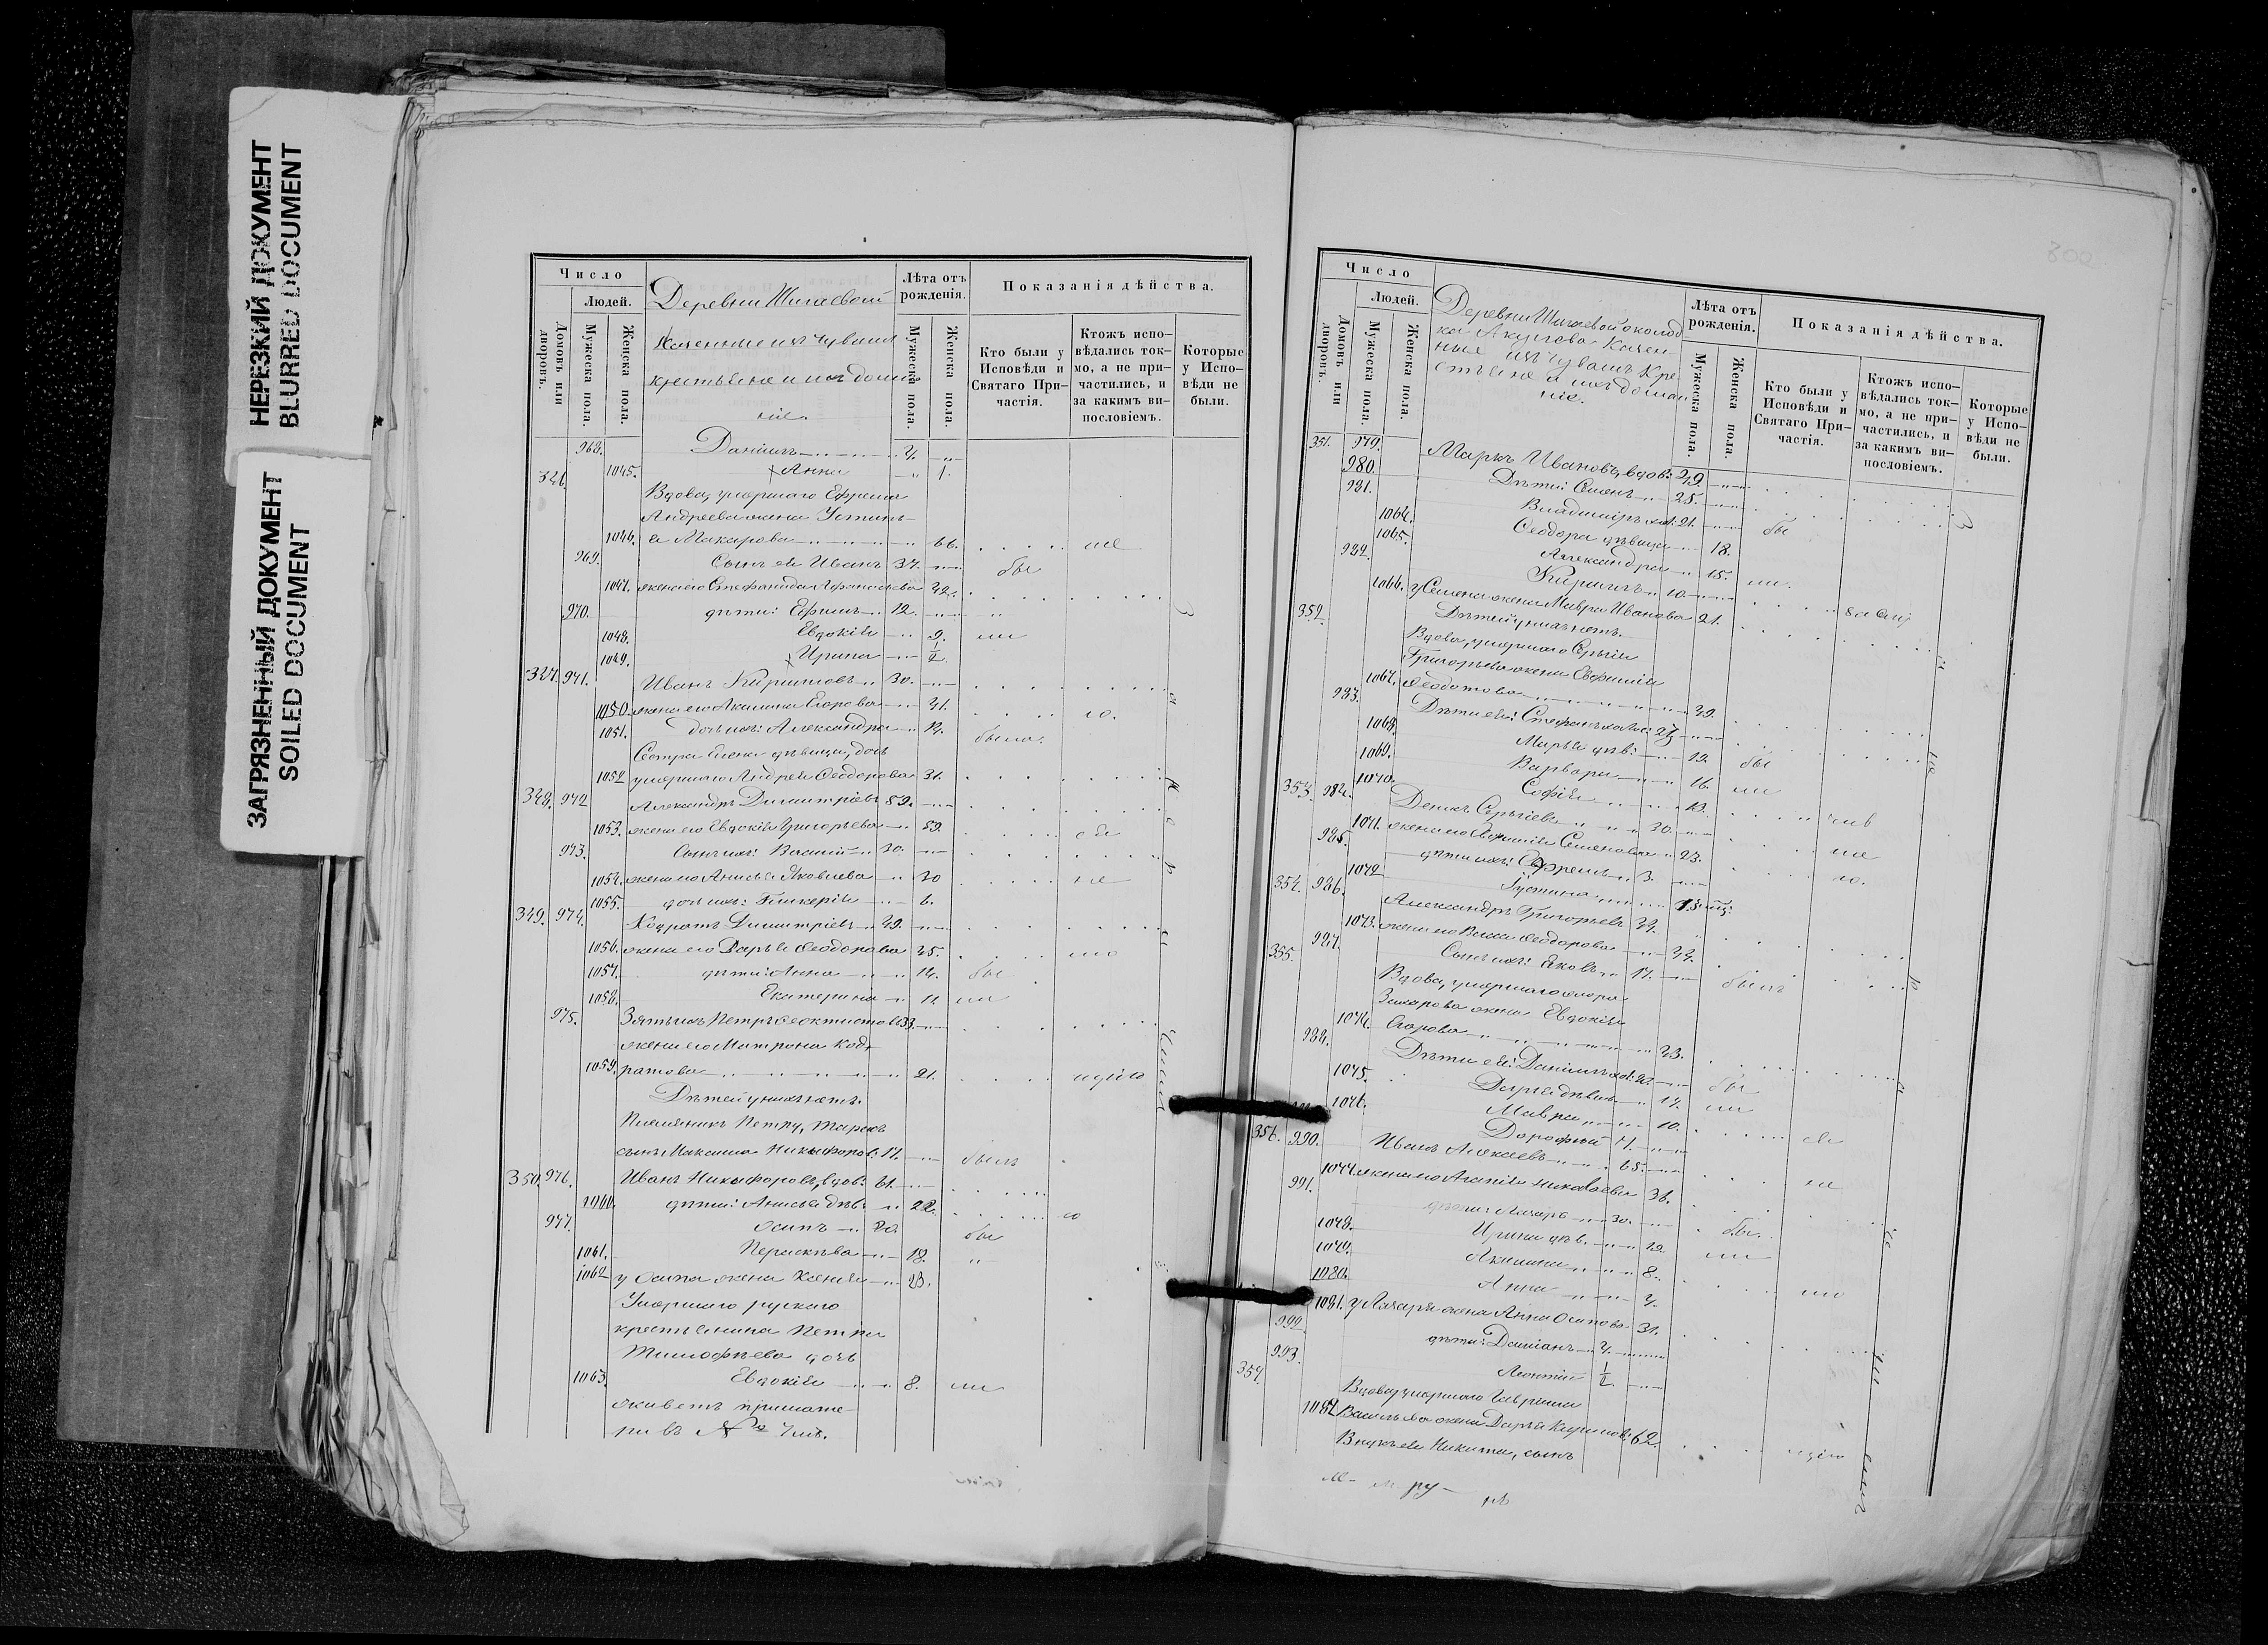 НЕРЕЗКИЙ ДОКУМЕНТ
BLURRED DOCUMENT
ЗАГРЯЗНЕННЫЙ ДОКУМЕНТ
SOILED DOCUMENT
Число
Людей.
Домовъ или дворовъ.
Мужеска пола.
Женска пола.
Деревни Шигаевой
Казенные изъ чувашъ
крестьяне и ихъ домаш
ніе.
Лѣта отъ рожденія.
Мужеска пола.
Женска пола.
Показанія дѣйства.
Кто были у Исповѣди и Святаго Причастія.
Ктожъ исповѣдались токмо, а не причастились, и за какимъ винословіемъ.
Которые у Исповѣди не были.
968. Даніилъ 4.
1045. Анна 1.
346.
Вдова, умершаго Ефрема
Андреева жена Устинь
1046. я Макарова 66.
969. Сынъ ея Иванъ 37. бы
1047. жена его Стефанида Афанасьева 42.
970. дѣти: Ефимъ 12.
1048. Евдокія 9. ли
1049. Ирина 1/2.
347. 971. Иванъ Кириловъ 30.
1050. жена его Акилина Егорова 31.
1051. дочь ихъ: Александра 12. была.
Сестра Елена дѣвица, дочь
1052 умершаго Андрея Ѳеодорова 31.
348. 972 Александръ Димитріевъ 59.
1053. жена его Евдокія Григорьева 59.
973. Сынъ ихъ: Василій 30.
1054. жена его Анисья Яковлева 30
1055. дочь ихъ: Гликерія 6.
349. 974. Кодратъ Димитріевъ 49.
1056. жена его Дарья Ѳеодорова 45.
1057. дѣти: Анна 14. бы
1058. Екатерина 11. ли
975. Зять ихъ Петръ Ѳеоктистовъ 33.
жена его Матрона Код
1059. ратова 21.
Дѣтей у нихъ нѣтъ.
Племянникъ Петру, Марк
сынъ Максима Никифоров. 17. былъ
350. 976. Иванъ Никифоровъ, вдов: 61.
1060. дѣти: Анисья дѣв. 22.
977. Осипъ 20. бы
1061. Пераскѣва 18.
1062 у Осипа жена Ксенія 23.
Умершаго рускаго
крестьянина Петра
Тимофѣева дочь
1063. Евдокія 8. ли
живетъ при мате-
ри въ №
Число
Людей.
Домовъ или дворовъ.
Мужеска пола.
Женска пола.
Деревни Шигаевой околод
ка Акулева Казен-
ные изъ чувашъ Кре
стьяне и ихъ домаш
ніе.
Лѣта отъ рожденія.
Мужеска пола.
Женска пола.
Показанія дѣйства.
Кто были у Исповѣди и Святаго Причастія.
Ктожъ исповѣдались токмо, а не причастились, и за какимъ винословіемъ.
Которые у Исповѣди не были.
351. 979. Маркъ Ивановъ, вдов: 49.
980. Дѣти: Семенъ 25.
981. Владиміръ хол: 21. бы
1064. Ѳеодора дѣвица 18.
1065. Александра 15. ли.
982. Кирилъ 10.
1066. у Семена жена Мавра Иванова 21.
Дѣтей у нихъ нѣтъ.
352.
Вдова, умершаго Сергія
Григорьева жена Евфимія
1067. Ѳедотова 49.
983. Дѣти ея: Стефанъ хол:
1068. Марья дѣв: 19. бы
1069. Варвара 16. ли
1070. Софія 13.
353. 984. Денисъ Сергіевъ 30.
1071. жена его Евфимія Семенова 23.
985. дѣти ихъ: Ефремъ 3.
1072 Іустина
354. 986. Александръ Григорьевъ 44.
1073. жена его Васса Ѳеодорова 44.
987. Сынъ ихъ: Яковъ 17. былъ
355.
Вдова, умершаго
Захарова жена Евдокія
1074. Егорова 43.
988. Дѣти ея: Даніилъ хол: 20. бы
1075. Дарья дѣвица 17. ли
1076. Мавра 10.
Дорофей 7.
356. 990. Иванъ Алексѣевъ 65.
1077. жена его Агапія Николаева 36.
991. дѣти: Лазарь 30.
1078. Ирина дѣв. 19. бы.
1079. Акилина 8. ли
1080. Анна 4.
1081. у Лазаря жена Анна Осипова 31.
992. дѣти: Даміанъ 4.
993. Леонтій 1/2.
357.
Вдова, умершаго Гавріила
1082 Васильева жена Дарья Кирилов. 62.
Внукъ ея Никита, сынъ